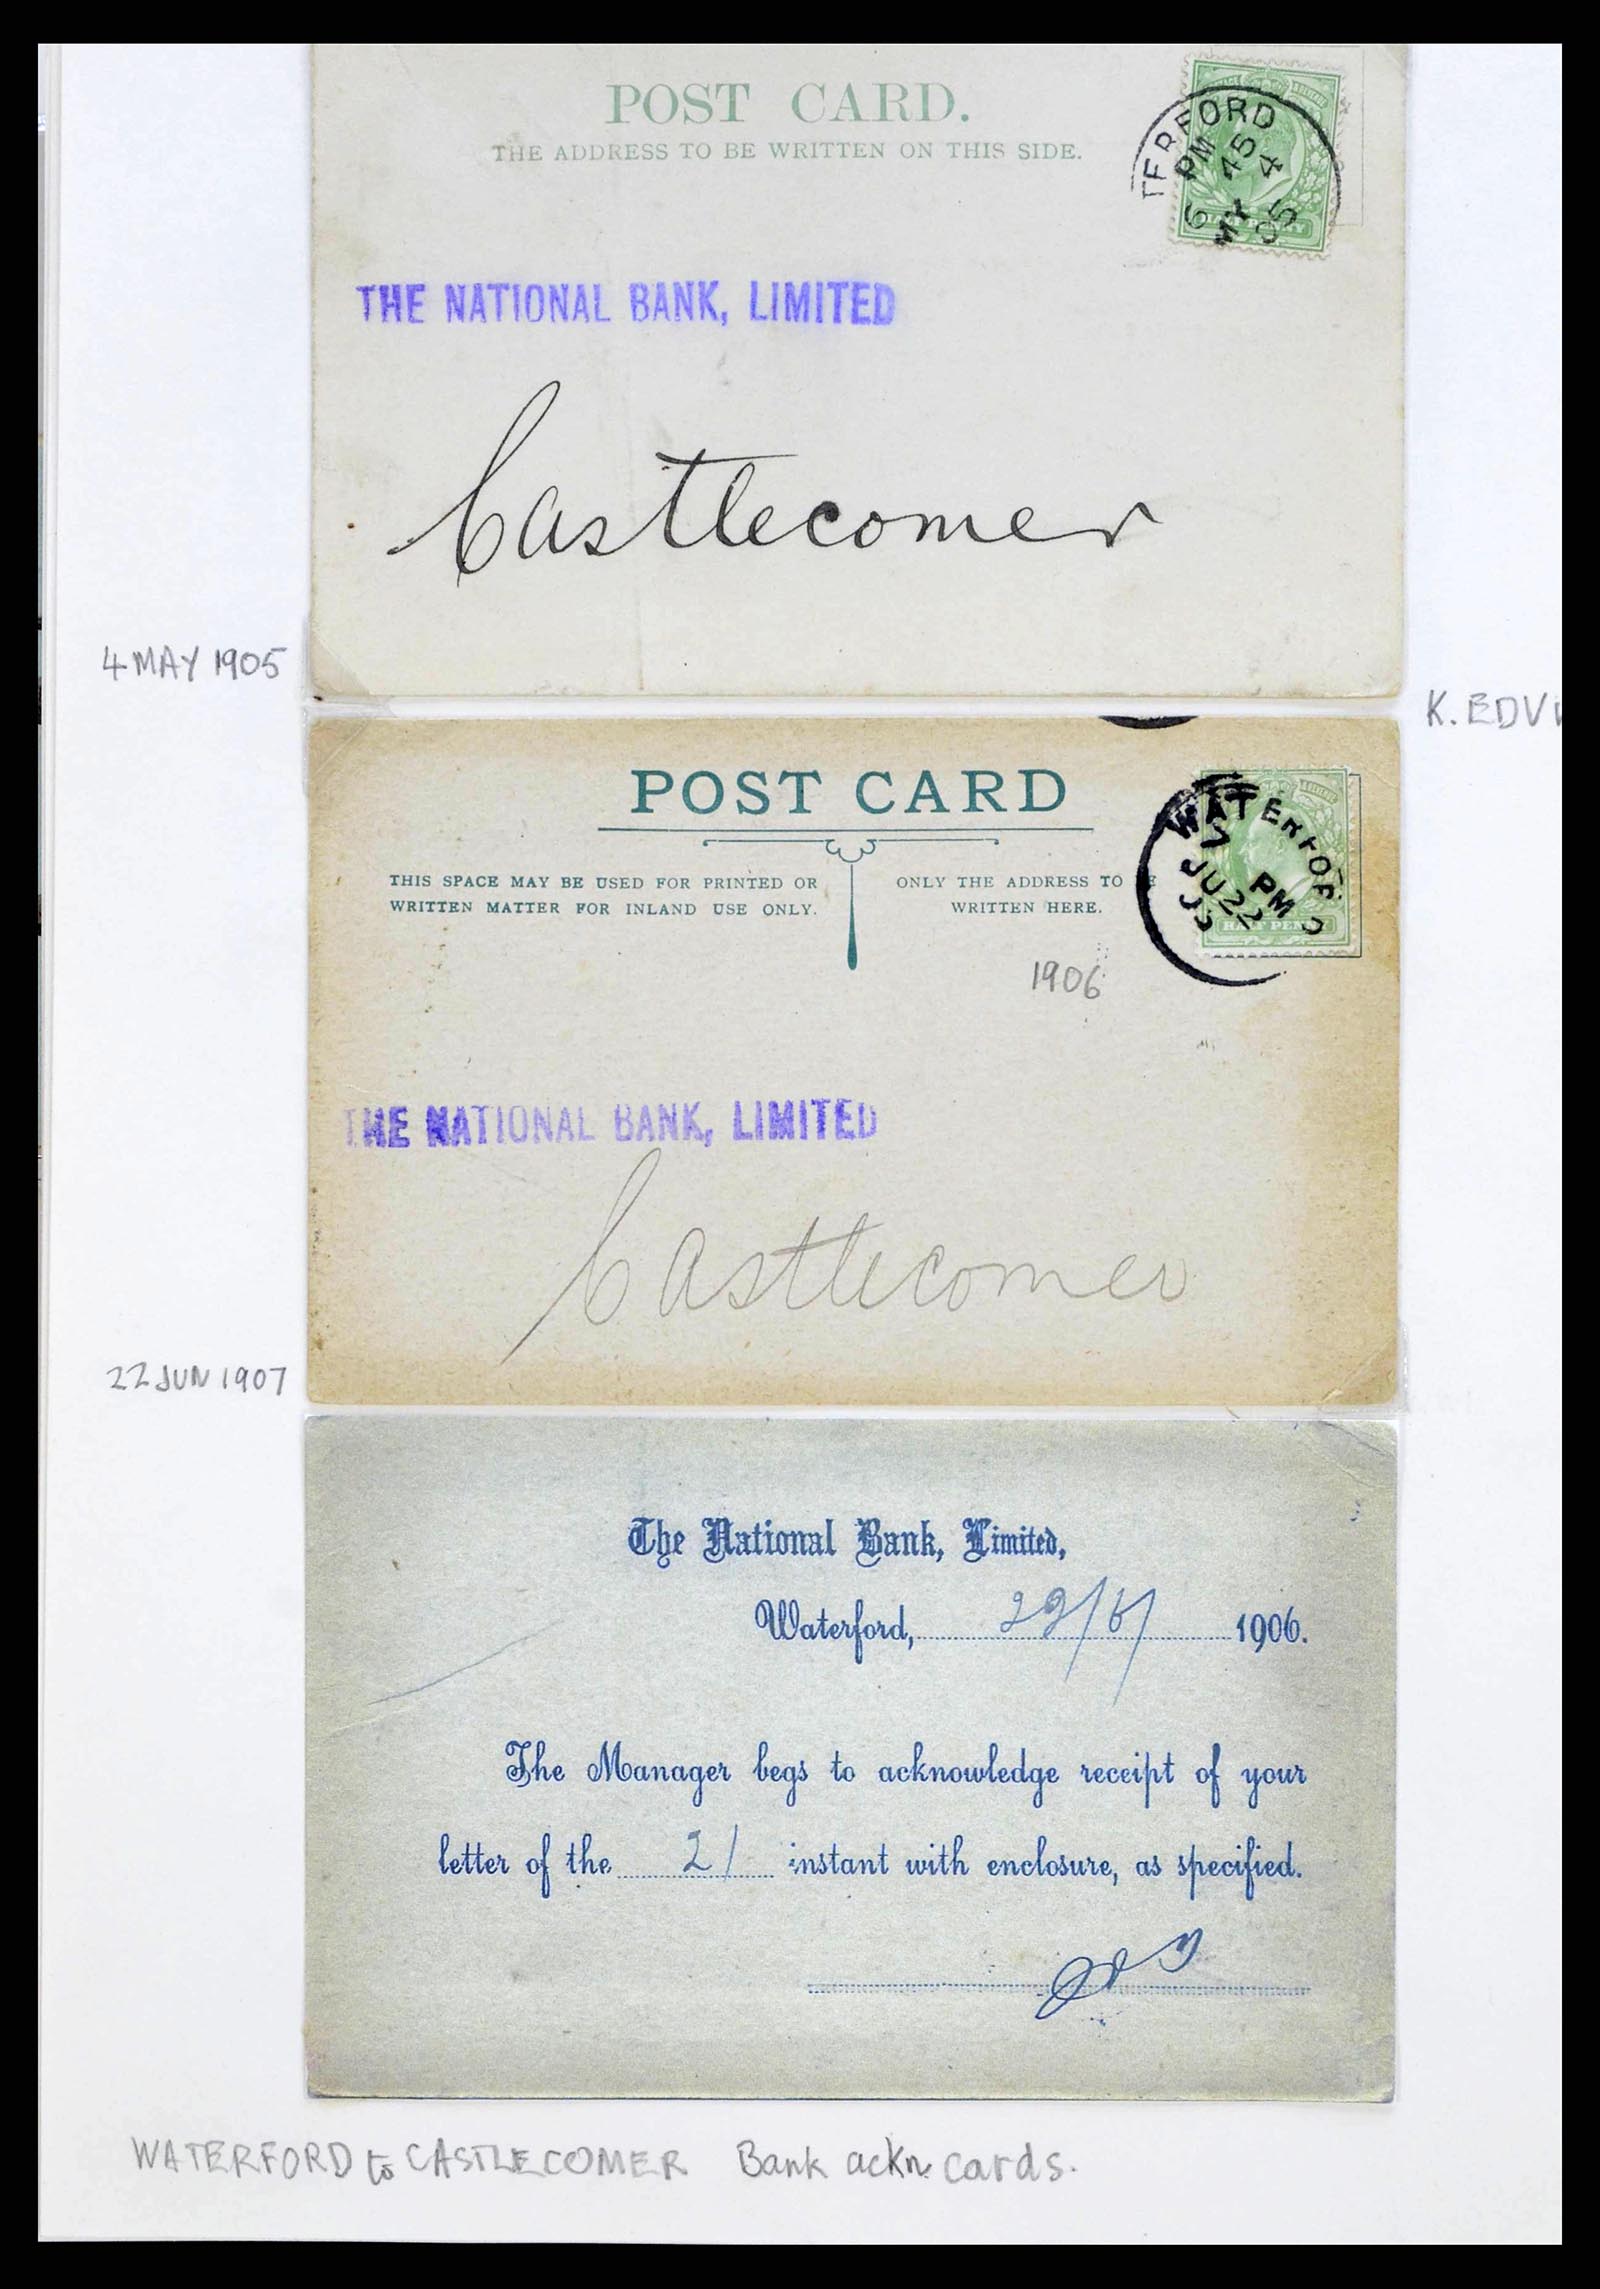 POST CARD.
THE ADDRESS TO BE WRITTEN ON THIS SIDE.
TERFORD
6 45 PM
MY 4
05
HALF PENNY
THE NATIONAL BANK, LIMITED
Castlecomer
4 MAY 1905
K. EDV
POST CARD
THIS SPACE MAY BE USED FOR PRINTED OR
WRITTEN MATTER FOR INLAND USE ONLY.
ONLY THE ADDRESS TO
WRITTEN HERE.
WATERFORD
7 PM
JU 22
HALF PENNY
1906
THE NATIONAL BANK, LIMITED
Castlecomer
22 JUN 1907
The National Bank, Limited,
Waterford, 22/6/ 1906.
The Manager begs to acknowledge receipt of your
letter of the 21 instant with enclosure, as specified.
WATERFORD to CASTLECOMER Bank ackn. cards.